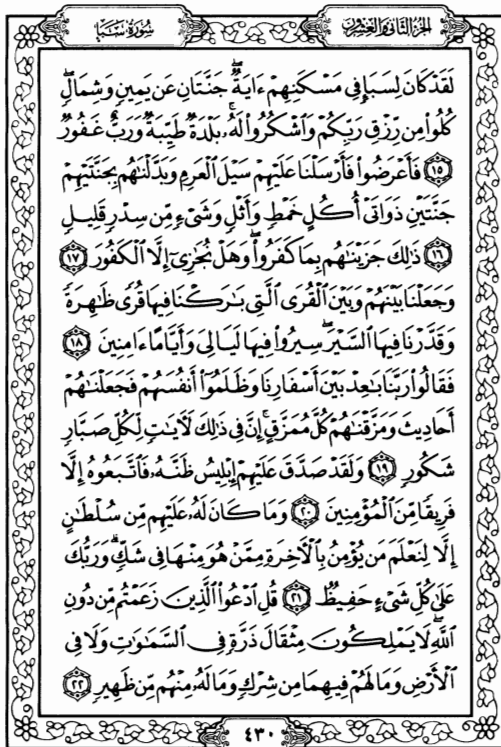 سُورَةُ سَبَإٍ
الجُزْءُ الثَّانِي وَالعِشْرُونَ
لَقَدْ كَانَ لِسَبَإٍ فِي مَسْكَنِهِمْ ءَايَةٌ ۖ جَنَّتَانِ عَن يَمِينٍ وَشِمَالٍ ۖ
كُلُوا۟ مِن رِّزْقِ رَبِّكُمْ وَٱشْكُرُوا۟ لَهُۥ ۚ بَلْدَةٌ طَيِّبَةٌ وَرَبٌّ غَفُورٌ
﴿١٥﴾ فَأَعْرَضُوا۟ فَأَرْسَلْنَا عَلَيْهِمْ سَيْلَ ٱلْعَرِمِ وَبَدَّلْنَٰهُم بِجَنَّتَيْهِمْ
جَنَّتَيْنِ ذَوَاتَىْ أُكُلٍ خَمْطٍ وَأَثْلٍ وَشَىْءٍ مِّن سِدْرٍ قَلِيلٍ
﴿١٦﴾ ذَٰلِكَ جَزَيْنَٰهُم بِمَا كَفَرُوا۟ ۖ وَهَلْ نُجَٰزِىٓ إِلَّا ٱلْكَفُورَ ﴿١٧﴾
وَجَعَلْنَا بَيْنَهُمْ وَبَيْنَ ٱلْقُرَى ٱلَّتِى بَٰرَكْنَا فِيهَا قُرًى ظَٰهِرَةً
وَقَدَّرْنَا فِيهَا ٱلسَّيْرَ ۖ سِيرُوا۟ فِيهَا لَيَالِىَ وَأَيَّامًا ءَامِنِينَ ﴿١٨﴾
فَقَالُوا۟ رَبَّنَا بَٰعِدْ بَيْنَ أَسْفَارِنَا وَظَلَمُوٓا۟ أَنفُسَهُمْ فَجَعَلْنَٰهُمْ
أَحَادِيثَ وَمَزَّقْنَٰهُمْ كُلَّ مُمَزَّقٍ ۚ إِنَّ فِى ذَٰلِكَ لَءَايَٰتٍ لِّكُلِّ صَبَّارٍ
شَكُورٍ ﴿١٩﴾ وَلَقَدْ صَدَّقَ عَلَيْهِمْ إِبْلِيسُ ظَنَّهُۥ فَٱتَّبَعُوهُ إِلَّا
فَرِيقًا مِّنَ ٱلْمُؤْمِنِينَ ﴿٢٠﴾ وَمَا كَانَ لَهُۥ عَلَيْهِم مِّن سُلْطَٰنٍ
إِلَّا لِنَعْلَمَ مَن يُؤْمِنُ بِٱلْءَاخِرَةِ مِمَّنْ هُوَ مِنْهَا فِى شَكٍّ ۗ وَرَبُّكَ
عَلَىٰ كُلِّ شَىْءٍ حَفِيظٌ ﴿٢١﴾ قُلِ ٱدْعُوا۟ ٱلَّذِينَ زَعَمْتُم مِّن دُونِ
ٱللَّهِ ۖ لَا يَمْلِكُونَ مِثْقَالَ ذَرَّةٍ فِى ٱلسَّمَٰوَٰتِ وَلَا فِى
ٱلْأَرْضِ وَمَا لَهُمْ فِيهِمَا مِن شِرْكٍ وَمَا لَهُۥ مِنْهُم مِّن ظَهِيرٍ ﴿٢٢﴾
٤٣٠